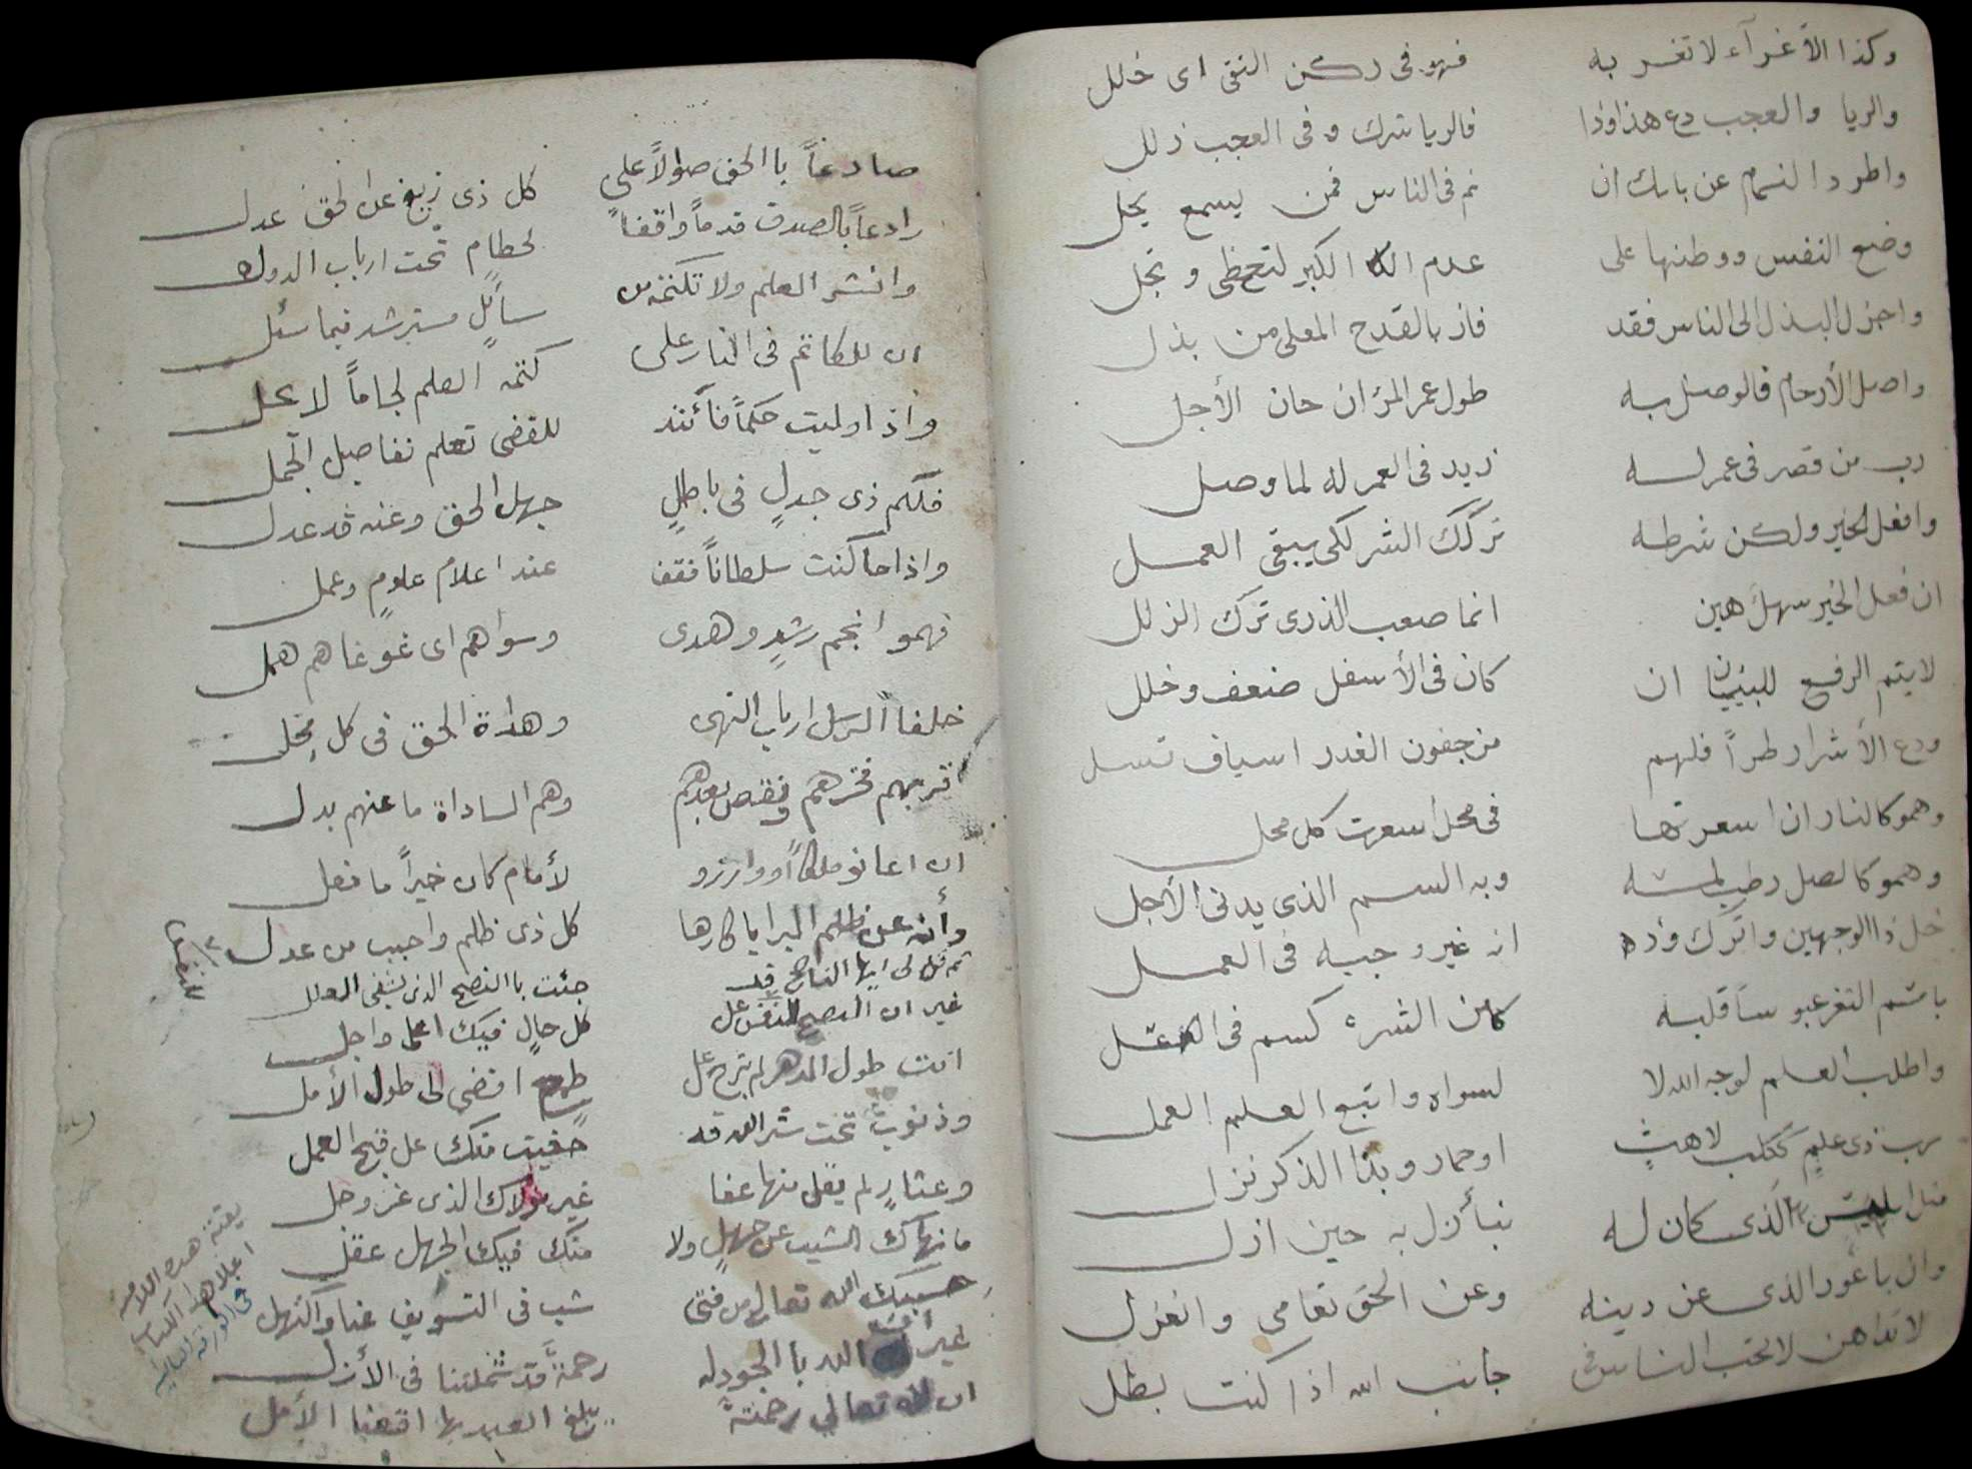 وكذا الأغرآء لا تغر به فهو فى ركن التقى اى خلل
والريا والعجب دع هذا وذا فالريا شرك وفى العجب زلل
واطرد النمام عن بابك ان نم فى الناس فمن يسمع يخل
وضع النفس ووطنها على عدم الكبر لتحظى وتجل
واجزل البذل الى الناس فقد فاز بالقدح المعلى من بذل
واصل الأرحام فالوصل به طول عمر المرء ان حان الأجل
رب من قصر فى عمر له زيد فى العمر له لما وصل
وافعل الخير ولكن شرطه تركك الشر لكى يبقى العمل
ان فعل الخير سهل هين انما صعب الذرى ترك الزلل
لا يتم الرفع للبنيان ان كان فى الأسفل ضعف وخلل
ودع الأشرار طراً فلهم من جفون الغدر اسياف تسل
وهمو كالنار ان اسعرتها فى محل اسعرت كل محل
وهمو كالصل رطب لمسه وبه السم الذى يدنى الأجل
خل ذا الوجهين واترك وده انه غير وجيه فى العمل
باسم الثغر عبوساً قلبه كامن الشره كسم فى العسل
واطلب العلم لوجه الله لا لسواه واتبع العلم العمل
رب ذى علم ككلب لاهث او حمار وبذا الذكر نزل
مثل ابليس الذى كان له نبأ زل به حين ازل
وان باعور الذى عن دينه وعن الحق تعامى وانعزل
لا تداهن لا تحب الناس فى جانب الله اذا كنت بطل
صادعاً باالحق صوالاً على كل ذى زيغ عن الحق عدل
رادعاً بالصدق قدماً واقفاً لحطام تحت ارباب الدول
وانشر العلم ولا تكتمه من سائل مسترشد فيما سئل
ان للكاتم فى النار على كتمه العلم لجاماً لا يحل
واذا وليت حكماً فأتئد للقضى تعلم تفاصيل الجمل
فلكم ذى جدلٍ فى باطلٍ جهل الحق وعنه قد عدل
واذا ما كنت سلطاناً فقف عند اعلام علومٍ وعمل
فهموا انجم رشدٍ وهدى وسواهم اى غوغا هم همل
خلفا الرسل ارباب النهى وهداة الحق فى كل محل
قربهم فخرهم ونقص بعدهم وهم الساداة ما عنهم بدل
ان اعانو ملكاً او وازرو لأمام كان خيراً ما فعل
وأنه عن ظلم البرايا كارها كل ذى ظلم واجبب من عدل
ثم قل لى ايها الناصح قد جئت باالنصح الذى يشفى العلل
غير ان النصح للنفس على كل حالٍ فيك اعلى واجل
انت طول الدهر لم تبرح على طمع افضى الى طول الأمل
وذنوب تحت ستر الله قد خفيت منك على قبح العمل
وعثارٍ لم يقل منها عفا غير مولاك الذى عز وجل
ما نهاك الشيب عن جهلٍ ولا منك فيك الجهل عقل
حسبك الله تعالى من فتى شب فى التسويف عنا واكتهل
غير أن الله باالجود له رحمةً قد شملتنا فى الأزل
ان لله تعالى رحمةً يبلغ العبد بها اقصا الأمل